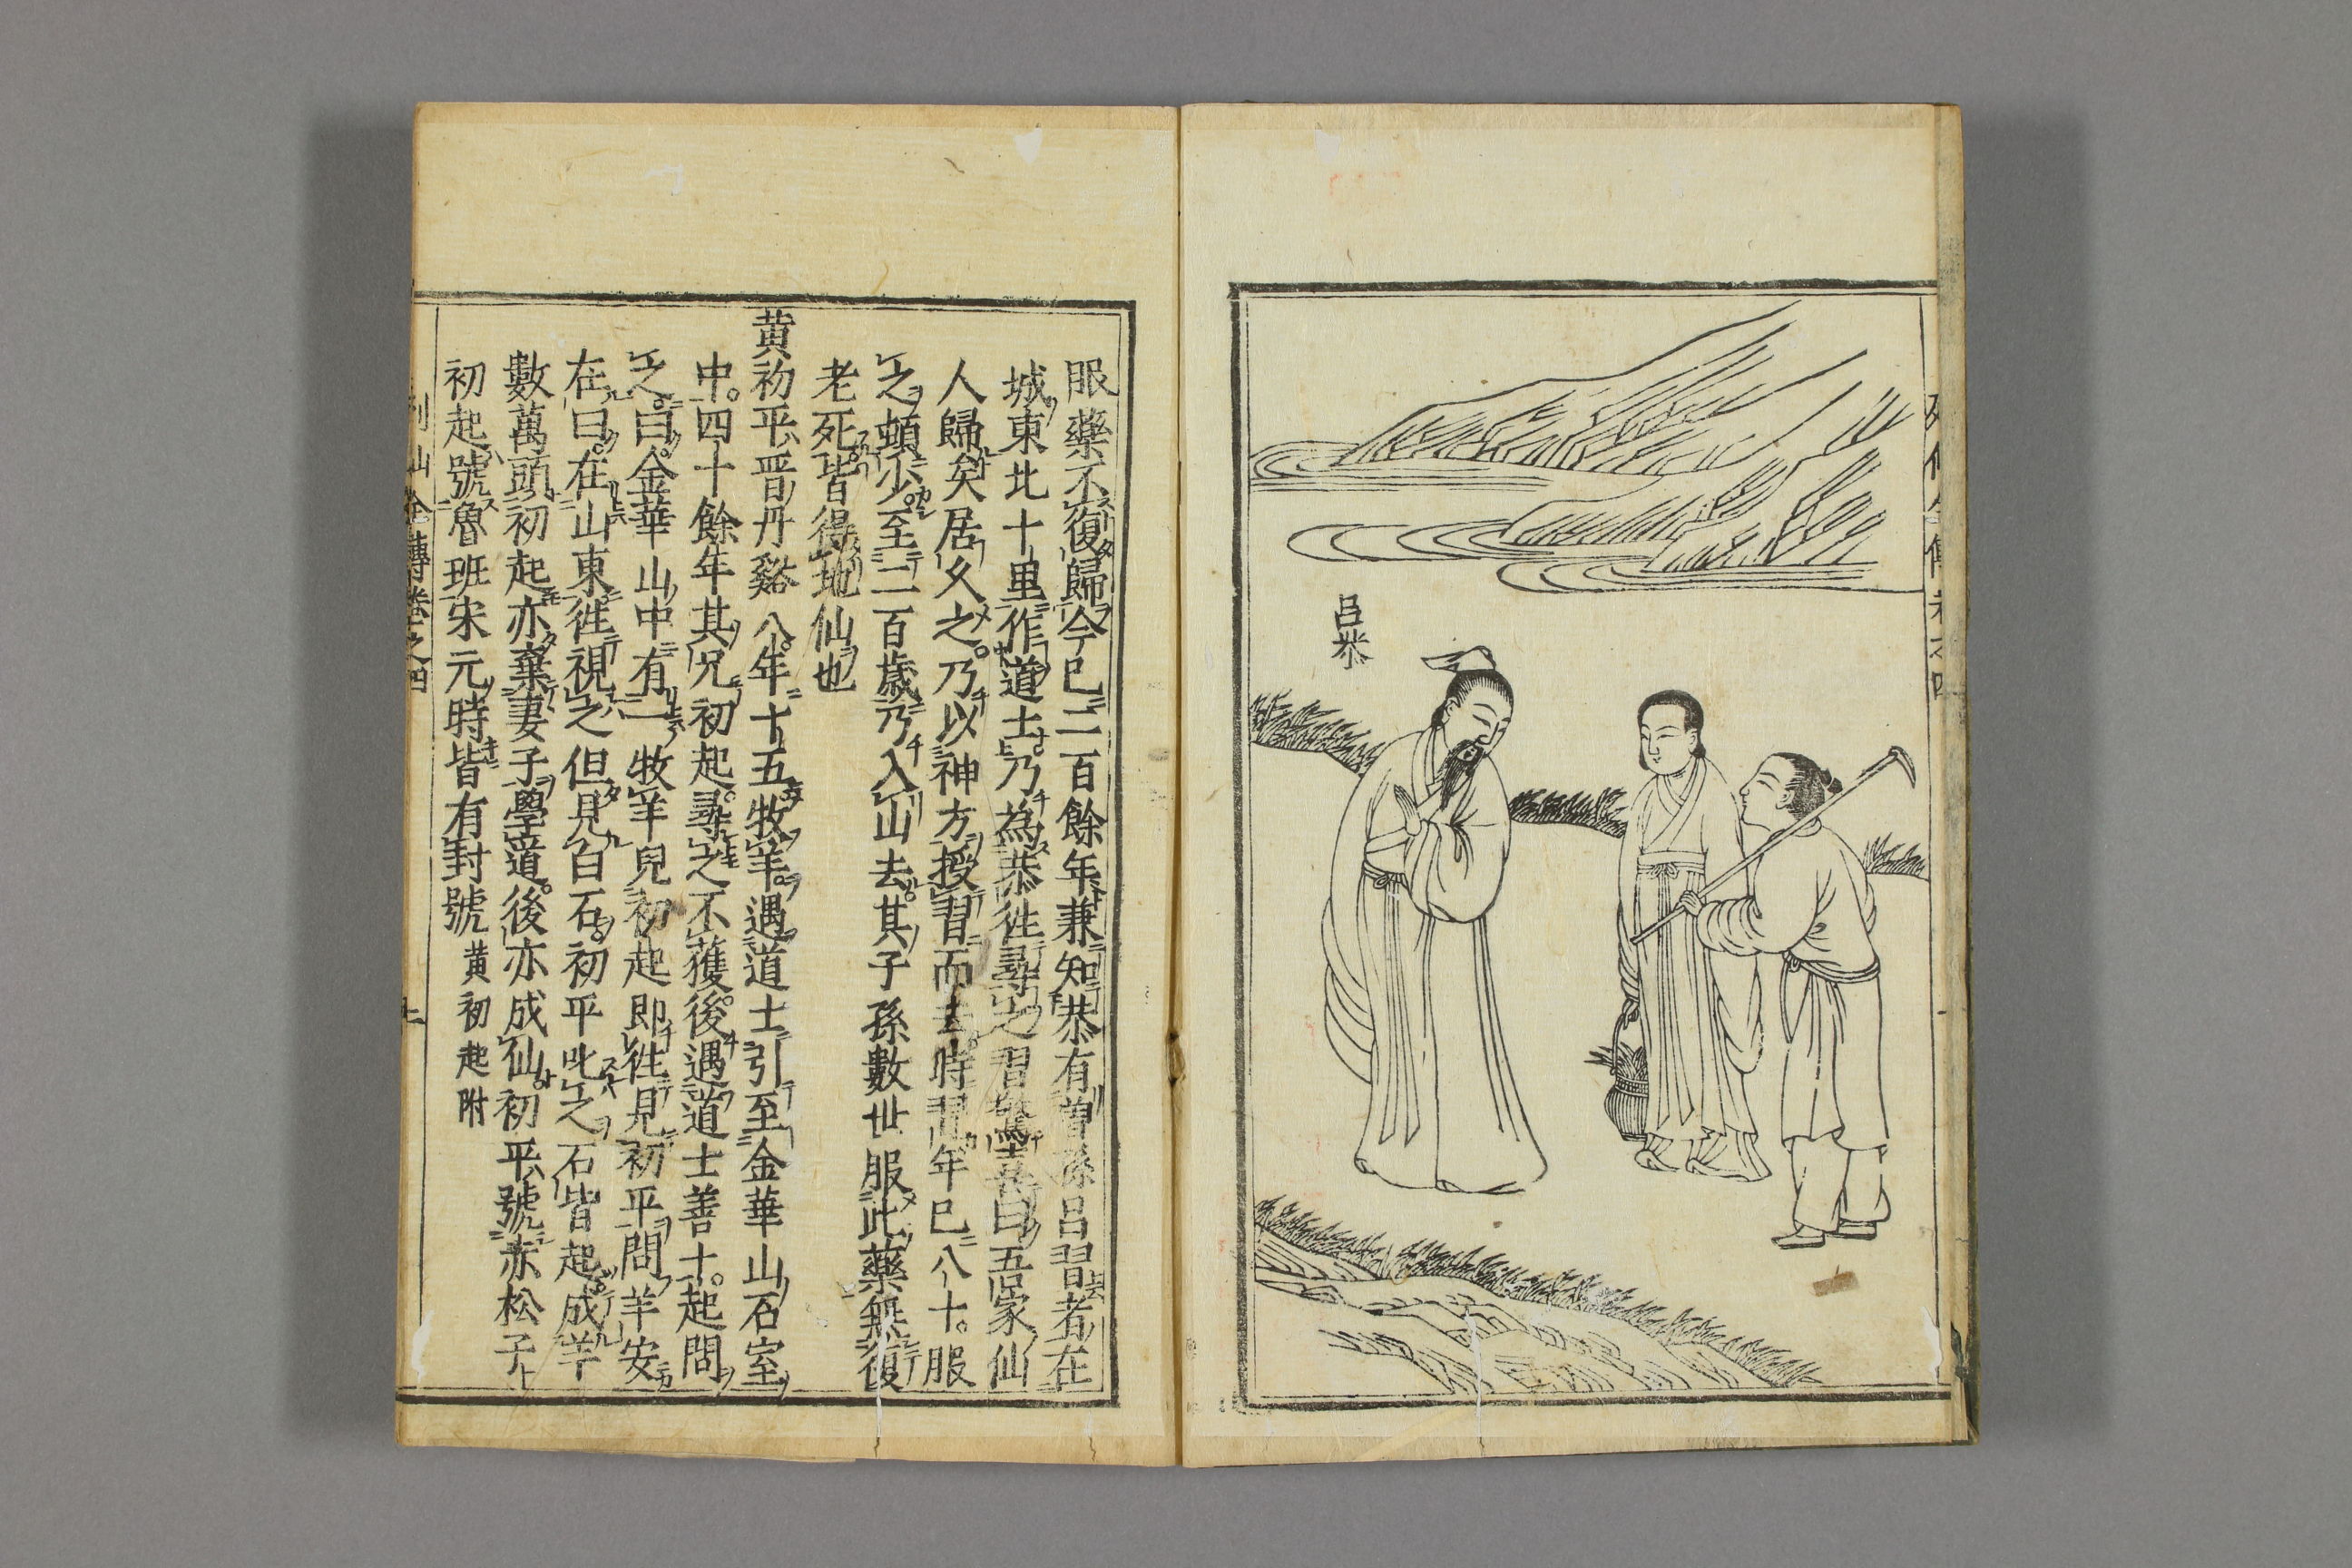 呂恭
眼藥不復歸今已二百餘年兼知恭有曽孫呂習者在
城東北十里作道士乃為恭徃尋之習驚喜曰吾家仙
人歸矣居久之乃以神方授習而去時習年已八十服
之頓少至二百歳乃入山去其子孫數世服此藥無復
老死皆得地仙也
黄初平晋丹谿八年十五牧羊遇道士引至金華山石室
中四十餘年其兄初起尋之不獲後遇道士善卜起問
之曰金華山中有一牧羊兒初起即徃見初平問羊安
在曰在山東徃視之但見白石初平叱之石皆起成羊
數萬頭初起亦棄妻子學道後亦成仙初平號赤松子
初起號魯班宋元時皆有封號 黄初起附
列仙全傳卷之四